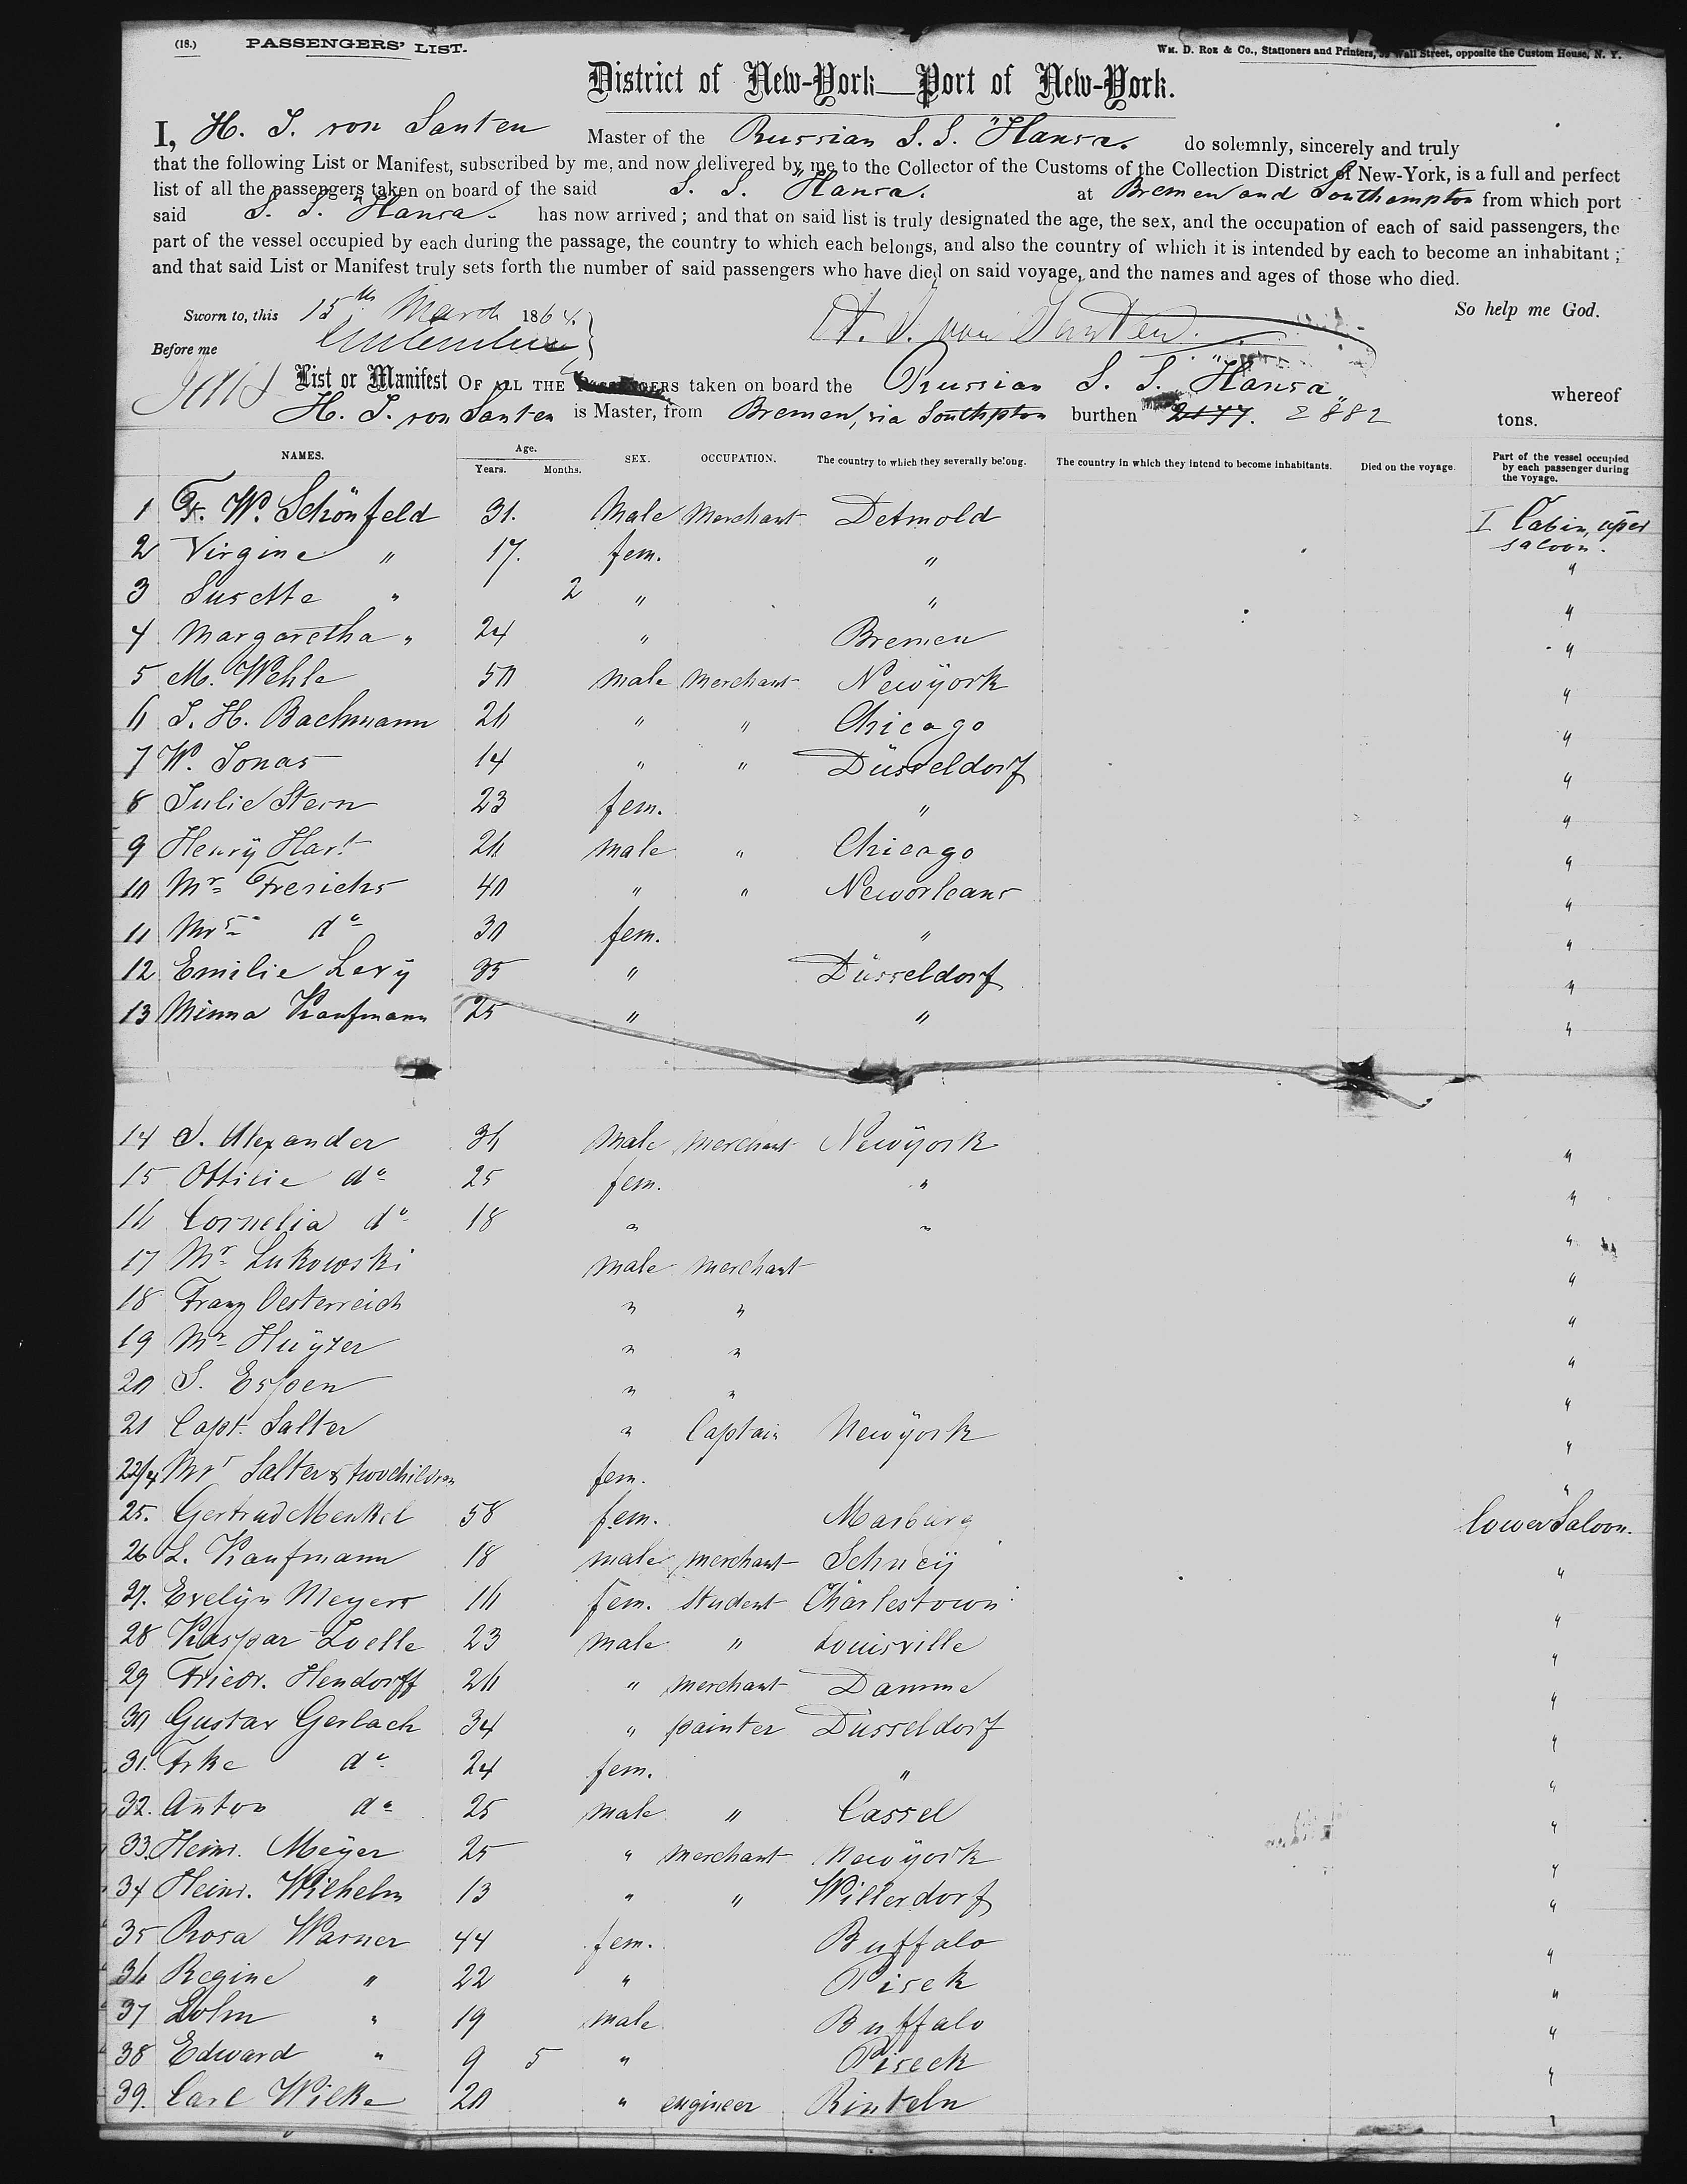 (18.) PASSENGERS' LIST. Wm. D. Roe & Co., Stationers and Printers, Wall Street, opposite the Custom House, N. Y.
District of New-York—Port of New-York.
I, H. J. von Santen Master of the Prussian S. S. "Hansa. do solemnly, sincerely and truly
that the following List or Manifest, subscribed by me, and now delivered by me to the Collector of the Customs of the Collection District of New-York, is a full and perfect
list of all the passengers taken on board of the said S. S. "Hansa. at Bremen and Southampton from which port
said S. S. "Hansa. has now arrived; and that on said list is truly designated the age, the sex, and the occupation of each of said passengers, the
part of the vessel occupied by each during the passage, the country to which each belongs, and also the country of which it is intended by each to become an inhabitant;
and that said List or Manifest truly sets forth the number of said passengers who have died on said voyage, and the names and ages of those who died.
Sworn to, this 15th March 1864. H. J. von Santen. So help me God.
Before me
List or Manifest OF ALL THE PASSENGERS taken on board the Prussian S. S. "Hansa" whereof
H. J. von Santen is Master, from Bremen, via Southpton burthen 2177. 2882 tons.
NAMES. Age. Years. Months. SEX. OCCUPATION. The country to which they severally belong. The country in which they intend to become inhabitants. Died on the voyage. Part of the vessel occupied by each passenger during the voyage.
1 Fr. W. Schönfeld 31. Male Merchant Detmold I Cabin, uper saloon.
2 Virgine " 17. fem. " "
3 Susette " 2 " " "
4 Margaretha " 24 " Bremen "
5 M. Wehle 50 male Merchant Newÿork "
6 J. H. Bachmann 26 " " Chicago "
7 W. Jonas 14 " " Düsseldorf "
8 Julie Stern 23 fem. " "
9 Henrÿ Hart 26 male " Chicago "
10 Mr. Frerichs 40 " " Neworleans "
11 Mrs. do 30 fem. " "
12 Emilie Levÿ 35 " Düsseldorf "
13 Minna Kaufmann 25 " " "
14 J. Alexander 36 Male Merchant Newÿork "
15 Ottilie do 25 fem. " "
16 Cornelia do 18 " " "
17 Mr. Lukowski male merchant "
18 Franz Oesterreich " " "
19 Mr. Huÿzer " " "
20 S. Espen " " "
21 Capt. Salter " Captain Newÿork "
22/4 Mrs Salter & two children fem. "
25. Gertrud Menkel 58 fem. Marburg lower Saloon.
26 L. Kaufmann 18 male merchant Schneÿ "
27. Evelÿn Meyers 16 fem. student Charlestown "
28 Kaspar Loelle 23 male " Louisville "
29 Friedr. Hendorff 26 " merchant Damme "
30 Gustav Gerlach 34 " painter Düsseldorf "
31. Frke do 24 fem. " "
32. Anton do 25 male " Cassel "
33. Heinr. Meÿer 25 " merchant Newÿork "
34 Heinr. Wilhelm 13 " " Willerdorf "
35 Rosa Warner 44 fem. Buffalo "
36 Regine " 22 " Pisek "
37 " 19 male Buffalo "
38 Edward " 9 5 " Piseck "
39. Carl Wilke 20 " engineer Rinteln "